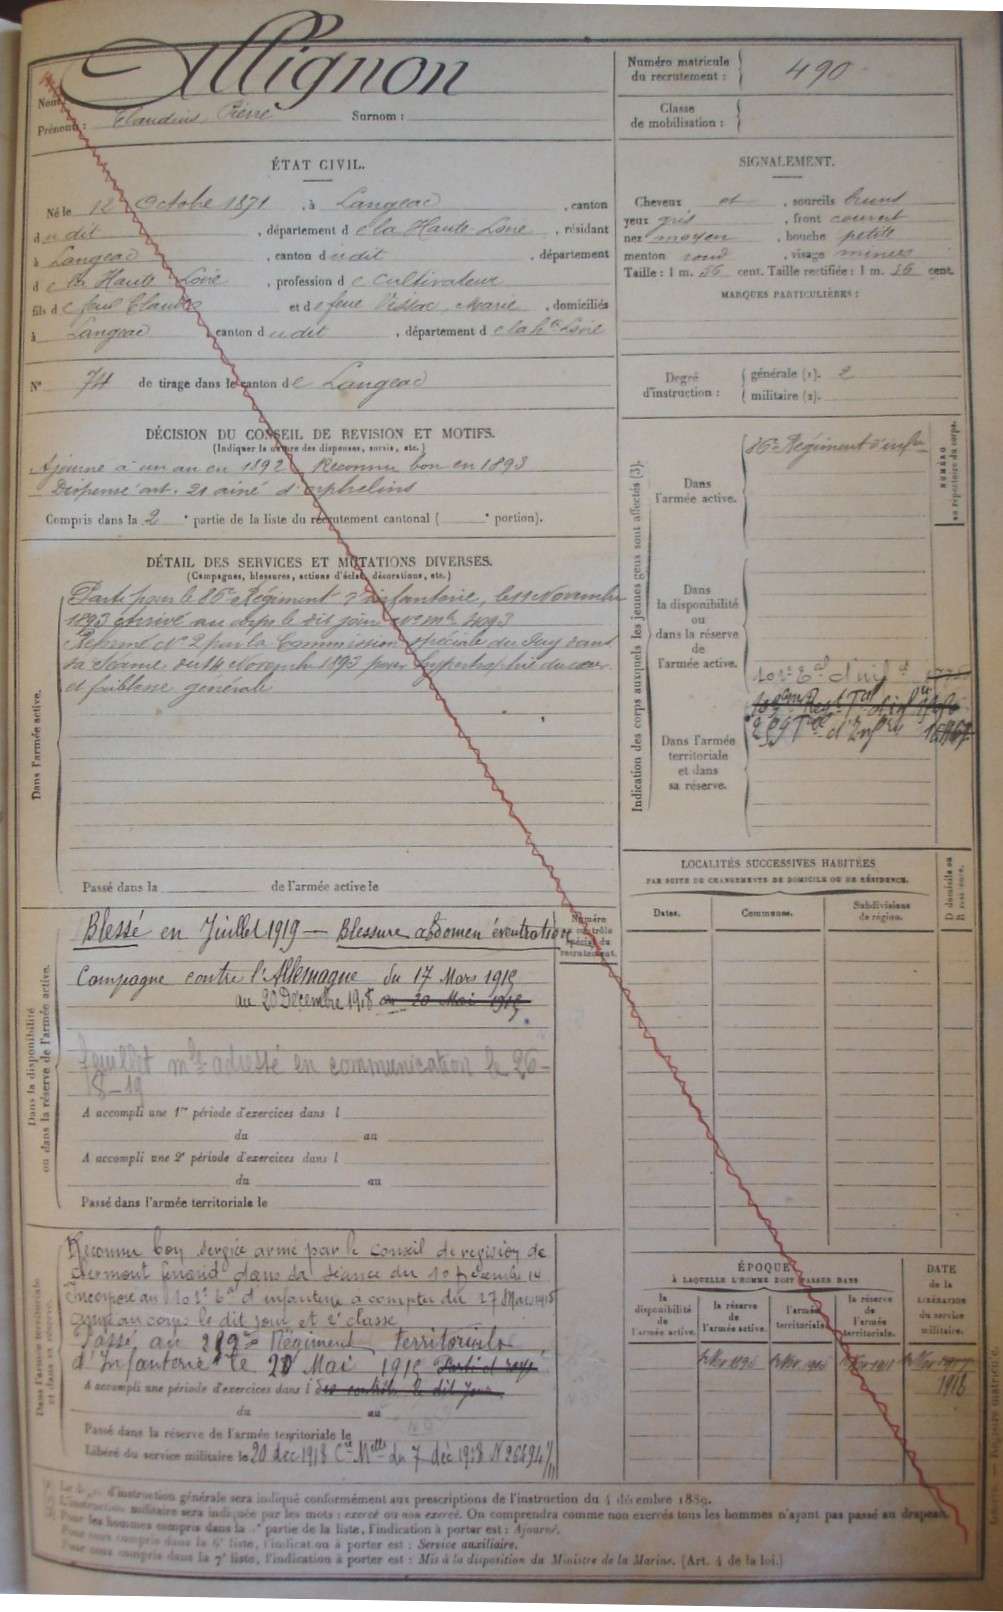 Allignon
Nom
Prénoms : Claudius Pierre Surnom :
Numéro matricule
du recrutement : 490
Classe
de mobilisation :
ÉTAT CIVIL.
Né le 12 Octobre 1871, à Langeac, canton
dudit, département de la Haute-Loire, résidant
à Langeac, canton dudit, département
de la Haute-Loire, profession de cultivateur
fils de feu Claude et de feue Vissac, Marie, domiciliés
à Langeac, canton dudit, département de la Hte Loire
SIGNALEMENT.
Cheveux et, sourcils bruns
yeux gris, front couvert
nez moyen, bouche petite
menton rond, visage mince
Taille : 1 m. 56 cent. Taille rectifiée : 1 m. 56 cent.
MARQUES PARTICULIÈRES :
N° 74 de tirage dans le canton de Langeac
Degré
d'instruction :
générale (1). 2
militaire (2).
DÉCISION DU CONSEIL DE REVISION ET MOTIFS.
(Indiquer la nature des dispenses, sursis, etc.)
Ajourné à un an en 1892. Reconnu bon en 1893
Dispensé art. 21 aîné d'orphelins
Compris dans la 2e partie de la liste du recrutement cantonal ( e portion).
DÉTAIL DES SERVICES ET MUTATIONS DIVERSES.
(Campagnes, blessures, actions d'éclat, décorations, etc.)
Dans l'armée active.
Parti pour le 86e Régiment d'infanterie, le 11 Novembre
1893 arrivé au corps le dit jour no mle 4093
Réformé No 2 par la Commission spéciale du Puy dans
sa séance du 14 Novembre 1893 pour hypertrophie du cœur
et faiblesse générale
Passé dans la de l'armée active le
Indication des corps auxquels les jeunes gens sont affectés (3).
NUMÉRO
au répertoire du corps.
Dans
l'armée active.
86e Régiment d'infrie
Dans
la disponibilité
ou
dans la réserve
de
l'armée active.
Dans l'armée
territoriale
et dans
sa réserve.
289 Tal d'Infrie
LOCALITÉS SUCCESSIVES HABITÉES
PAR SUITE DE CHANGEMENTS DE DOMICILE OU DE RÉSIDENCE.
Dates.
Communes.
Subdivisions
de région.
D domicile ou
R résidence.
Dans la disponibilité
ou dans la réserve de l'armée active.
Numéro
au contrôle
spécial du
recrutement.
Blessé en Juillet 1919 — Blessure abdomen éventration
Campagne contre l'Allemagne du 17 Mars 1915
au 20 Décembre 1918 au 20 Mai 1915
feuillet mle adressé en communication le 26-
8-19
A accompli une 1re période d'exercices dans l
du au
A accompli une 2e période d'exercices dans l
du au
Passé dans l'armée territoriale le
Dans l'armée territoriale
et dans sa réserve.
Reconnu bon service armé par le conseil de revision de
Clermont Ferrand dans sa séance du 10 Décembre 14
Incorporé au 101e Bon d'infanterie à compter du 27 Mars 1915
arrivé au corps le dit jour et 2e classe
Passé au 289e Régiment Territoriale
d'Infanterie le 20 Mai 1915
A accompli une période d'exercices dans l des contrôles le dit jour
du au
Passé dans la réserve de l'armée territoriale le
Libéré du service militaire le 20 déc 1918 Cre Mlle du 7 déc 1918 N 26694 1/11
ÉPOQUE
À LAQUELLE L'HOMME DOIT PASSER DANS
la
disponibilité
de
l'armée active.
la réserve
de
l'armée active.
l'armée
territoriale.
la réserve
de
l'armée
territoriale.
DATE
de la
LIBÉRATION
du service
militaire.
1918
Le degré d'instruction générale sera indiqué conformément aux prescriptions de l'instruction du 4 décembre 1889.
L'instruction militaire sera indiquée par les mots : exercé ou non exercé. On comprendra comme non exercés tous les hommes n'ayant pas passé au drapeau.
Pour les hommes compris dans la partie de la liste, l'indication à porter est : Ajourné.
Pour ceux compris dans la 6e liste, l'indication à porter est : Service auxiliaire.
Pour ceux compris dans la 7e liste, l'indication à porter est : Mis à la disposition du Ministre de la Marine. (Art. 4 de la loi.)